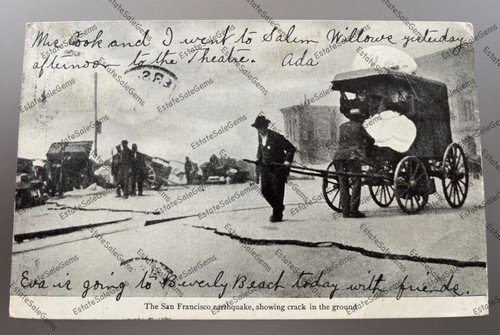 Mrs Cook and I went to Salem Willows yesterday
afternoon to the Theatre. Ada
Eva is going to Beverly Beach today with friends.
The San Francisco earthquake, showing crack in the ground.
EstateSaleGems